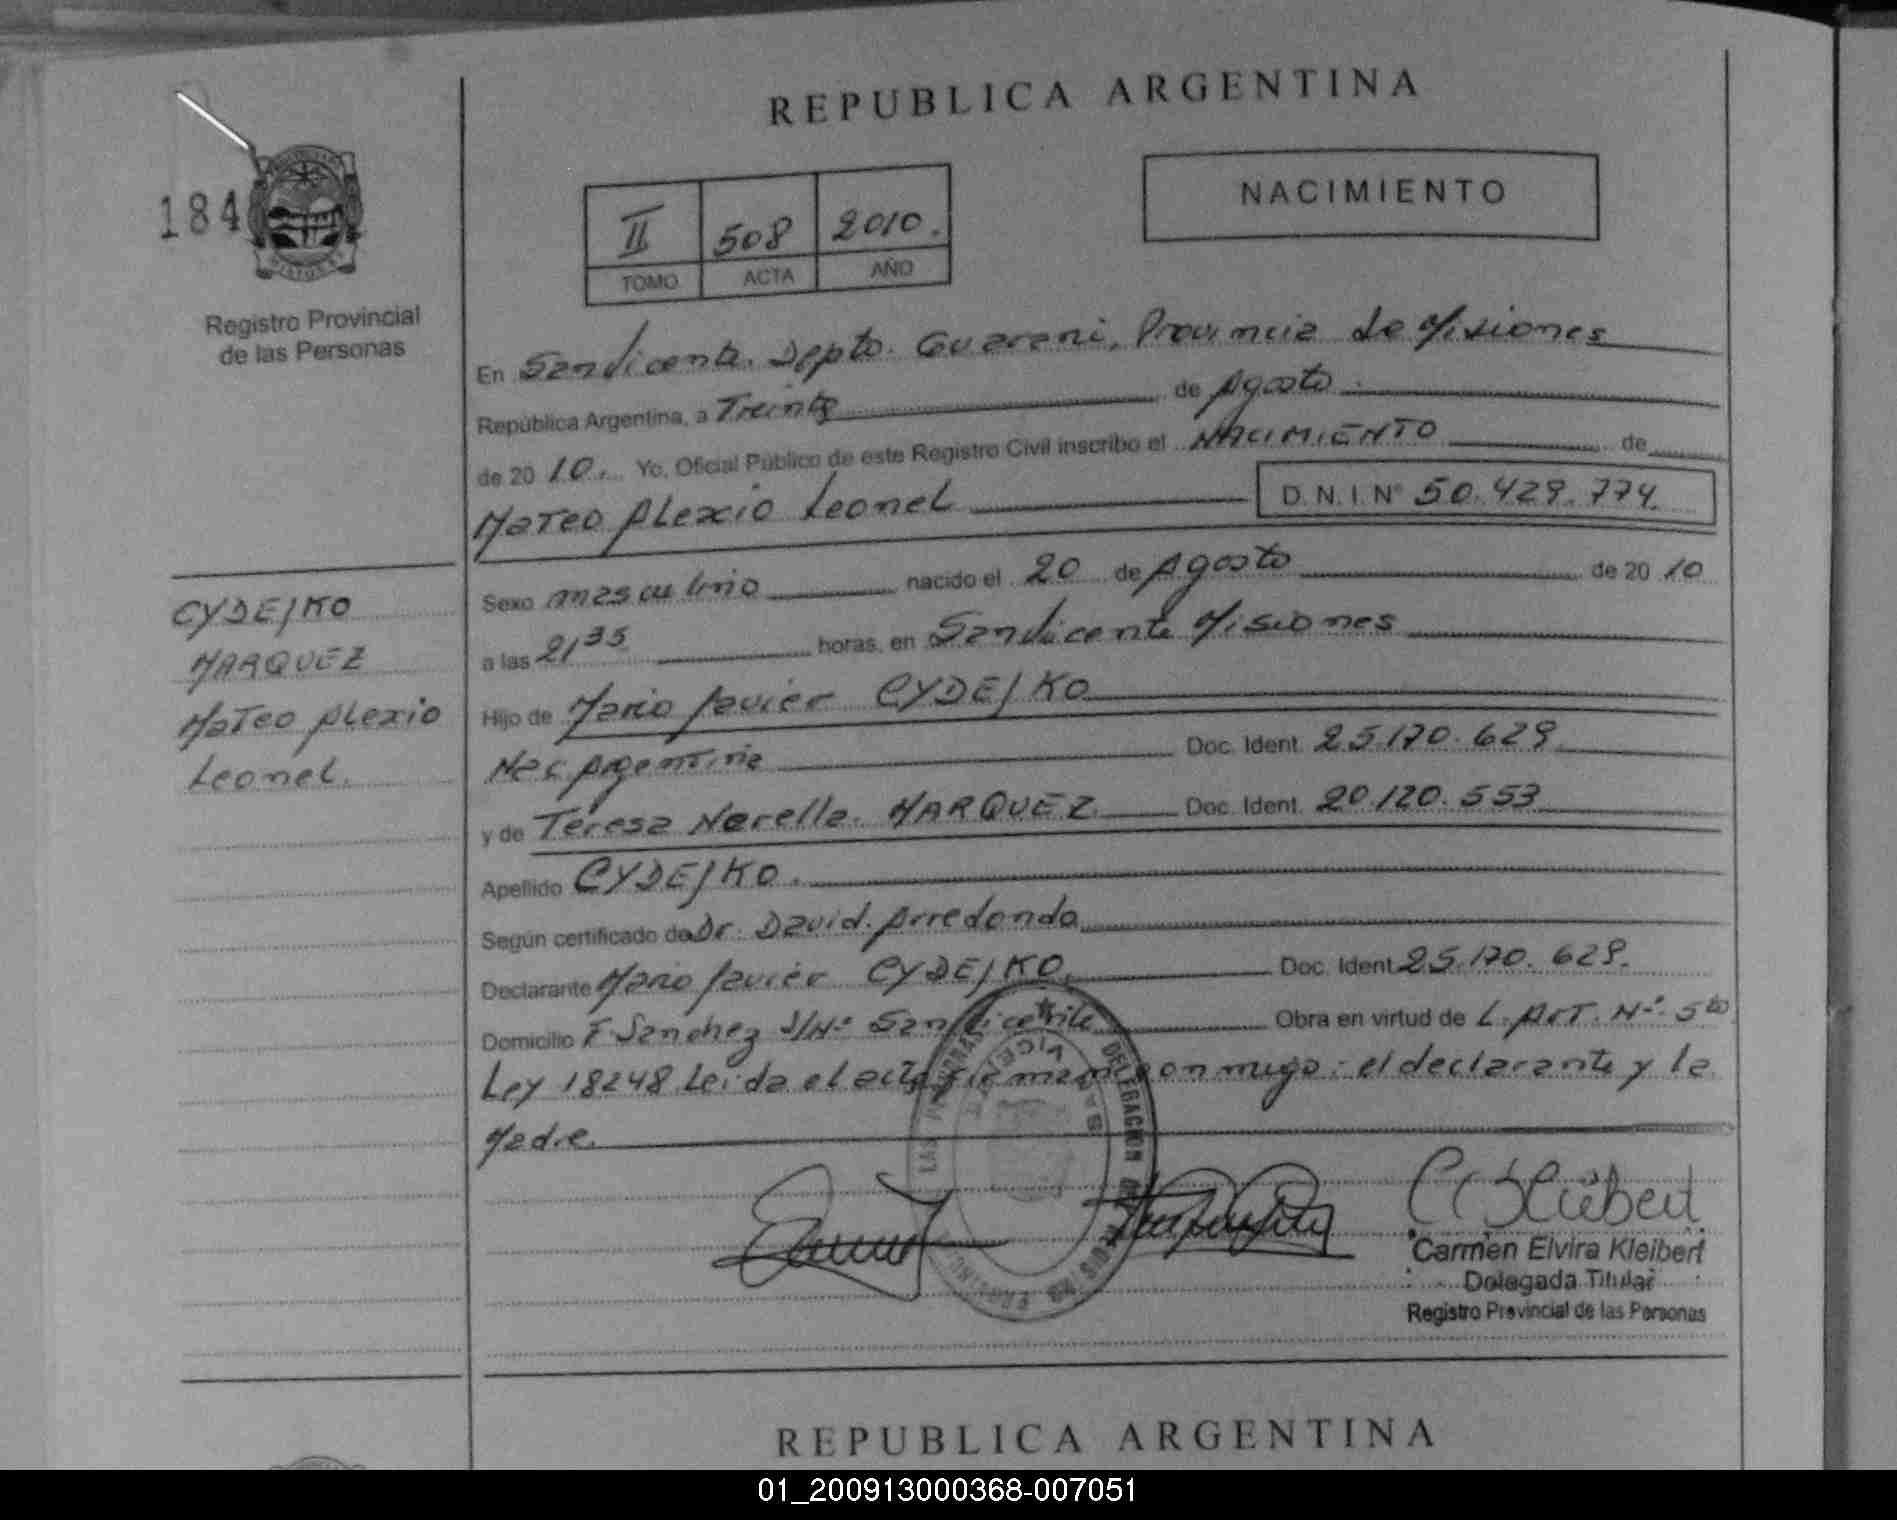 REPUBLICA ARGENTINA
184
NACIMIENTO
II 508 2010.
TOMO ACTA AÑO
Registro Provincial
de las Personas
En San Vicente. Dpto. Guarani, Provincia de Misiones
República Argentina, a Treinta de Agosto.
de 20 10. Yo, Oficial Público de este Registro Civil inscribo el NACIMIENTO de
Mateo Alexio Leonel D. N. I. N° 50.429.774.
CYDEJKO
MARQUEZ
Mateo Alexio
Leonel.
Sexo masculino nacido el 20 de Agosto de 20 10
a las 21 35 horas, en San Vicente Misiones
Hijo de Mario Javier CYDEJKO
Nac. Argentina Doc. Ident. 25.170.629
y de Teresa Norella. MARQUEZ. Doc. Ident. 20.120.553
Apellido CYDEJKO.
Según certificado de Dr. David. Arredondo
Declarante Mario Javier CYDEJKO. Doc. Ident 25.170.629.
Domicilio F Sanchez S/Nº San Vicente Obra en virtud de L. Art. Nº 5to
Ley 18248 Leida el acta firman conmigo: el declarante y la
Madre.
DELEGACION
Carmen Elvira Kleibert
Delegada Titular
Registro Provincial de las Personas
REPUBLICA ARGENTINA
01_200913000368-007051